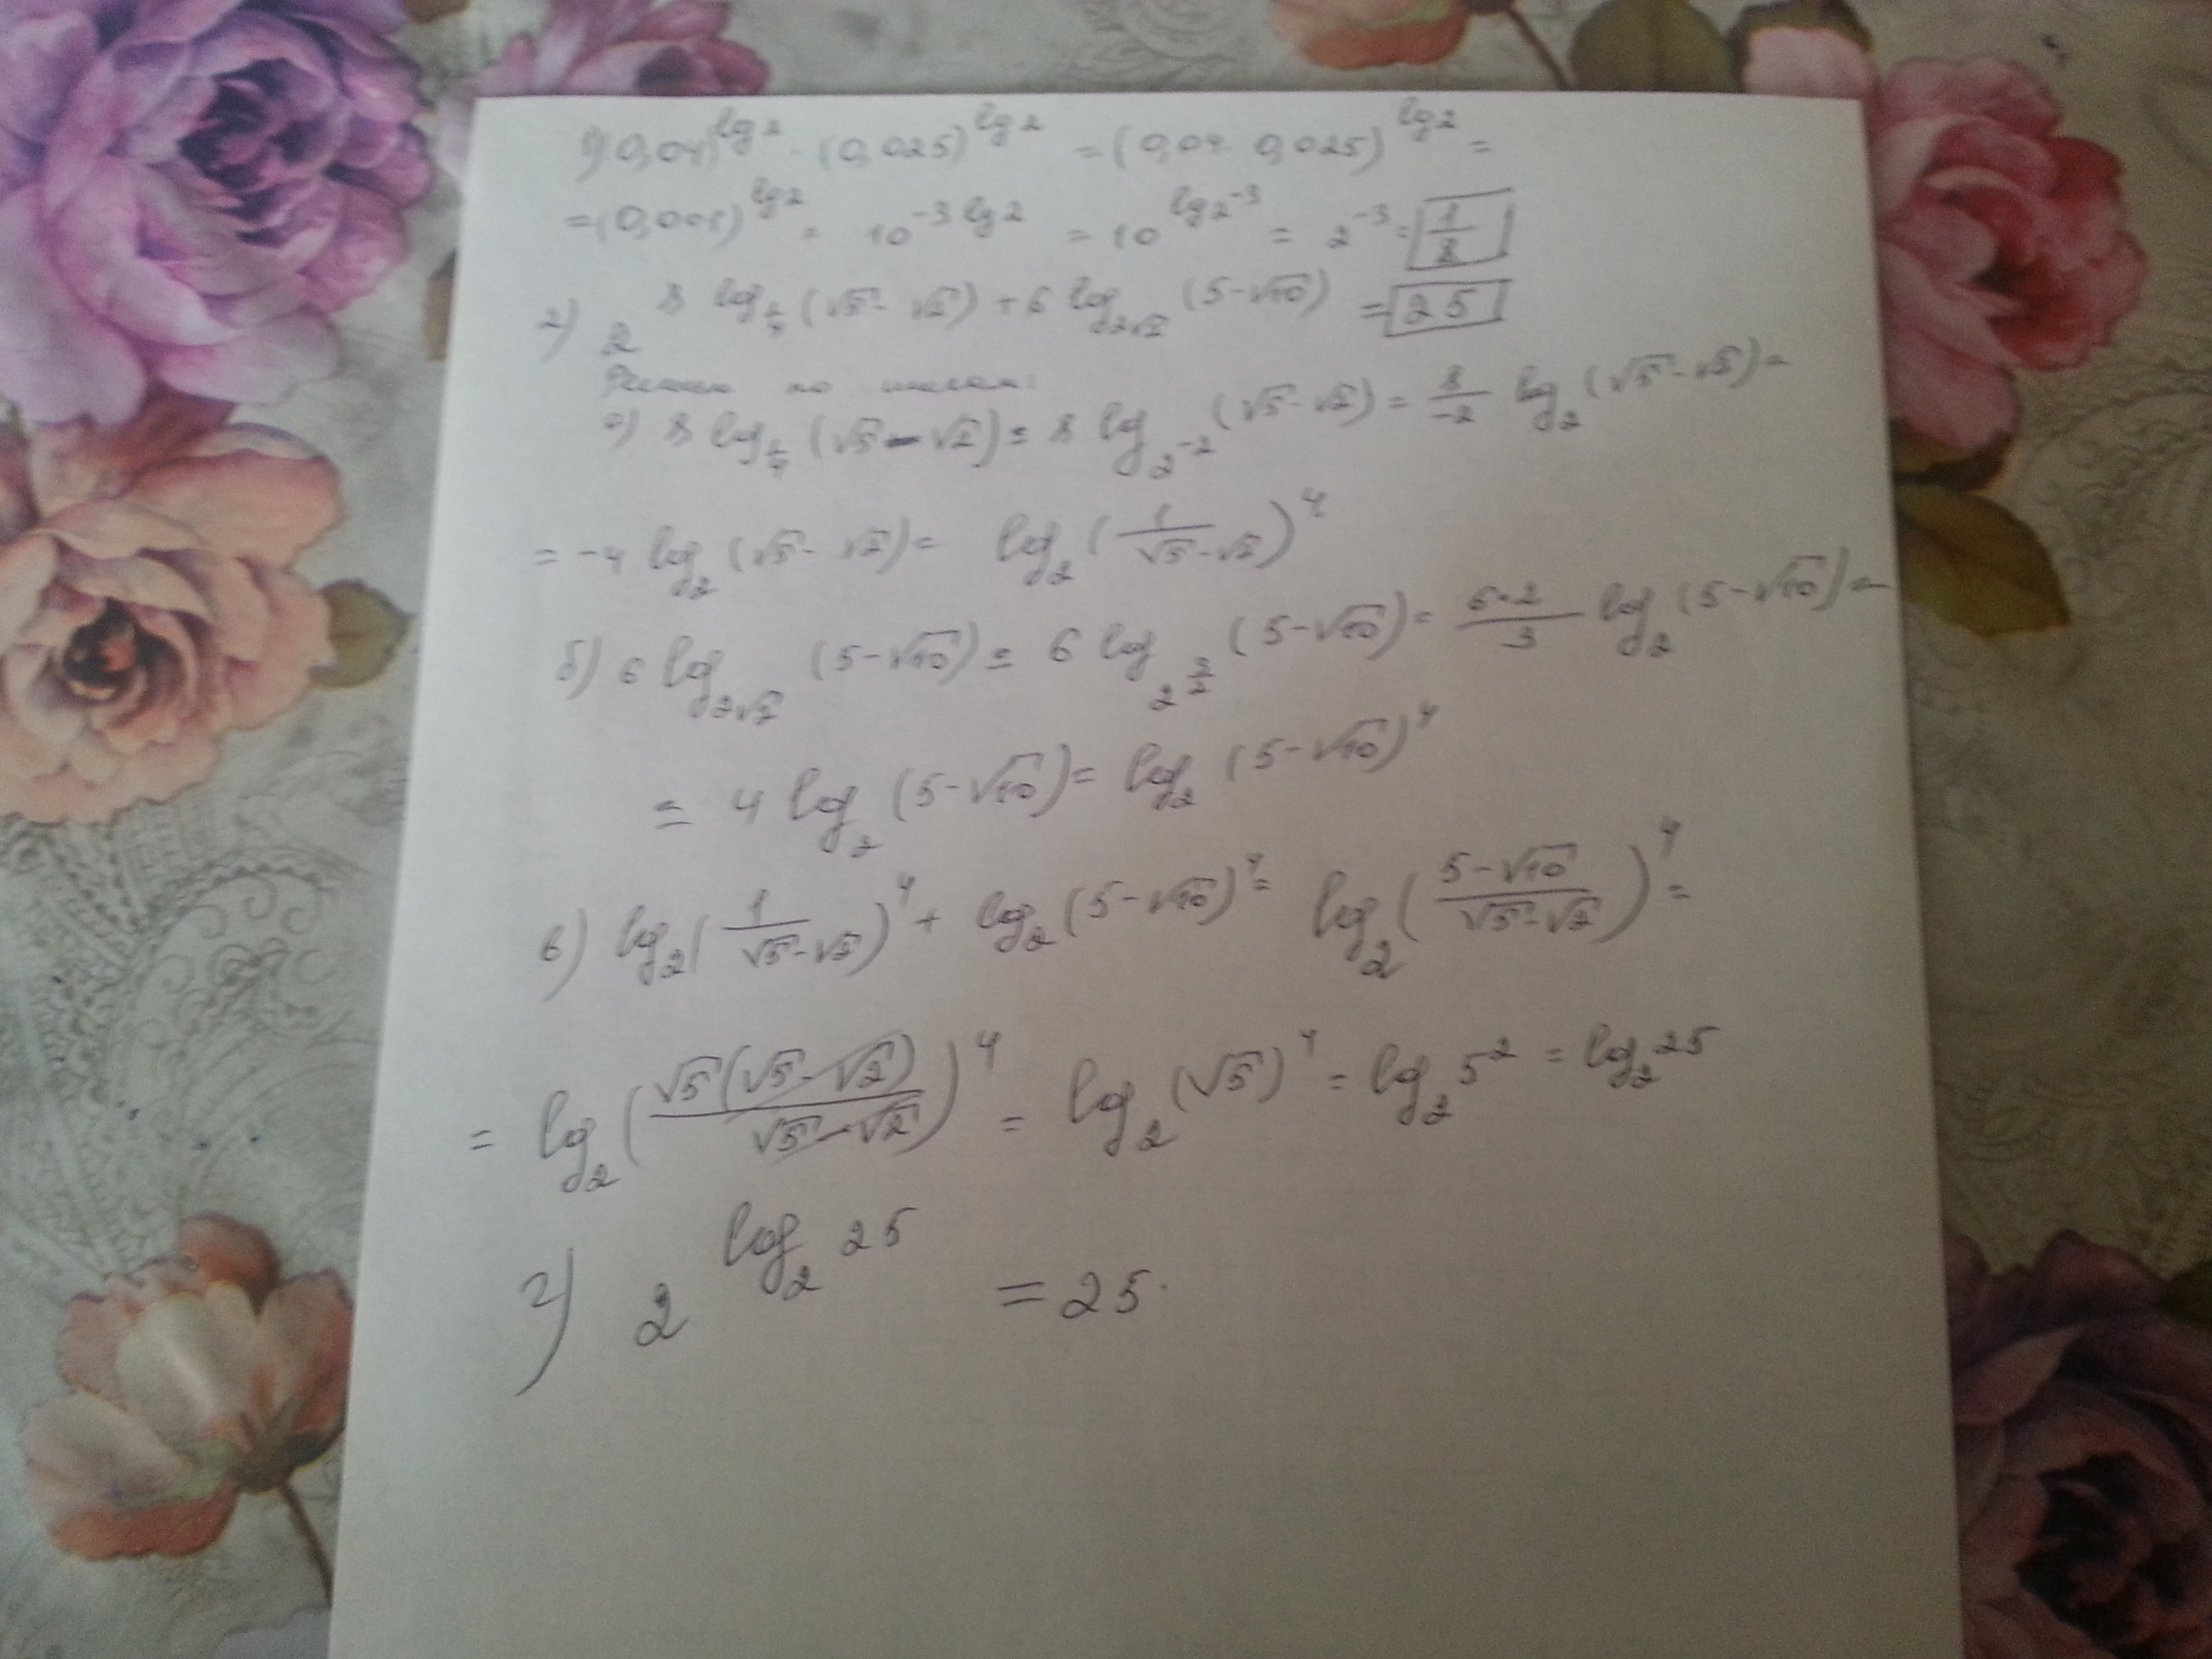 1) (0,04)^lg2 · (0,025)^lg2 = (0,04 · 0,025)^lg2 =
= (0,001)^lg2 = 10^-3 lg2 = 10^lg2^-3 = 2^-3 = 1/8
2) 2^8 log_1/4 (√5 - √2) + 6 log_2√2 (5-√10) = 25
Решаем по шагам:
а) 8 log_1/4 (√5 - √2) = 8 log_2^-2 (√5 - √2) = 8/-2 log_2 (√5 - √2) =
= -4 log_2 (√5 - √2) = log_2 (1/√5-√2)^4
б) 6 log_2√2 (5-√10) = 6 log_2^3/2 (5-√10) = 6·2/3 log_2 (5-√10) =
= 4 log_2 (5-√10) = log_2 (5-√10)^4
в) log_2 (1/√5-√2)^4 + log_2 (5-√10)^4 = log_2 (5-√10/√5-√2)^4 =
= log_2 (√5(√5-√2)/√5-√2)^4 = log_2 (√5)^4 = log_2 5^2 = log_2 25
г) 2^log_2 25 = 25.